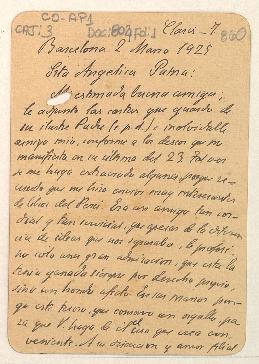 CO-AP1
CAT: 3
Claris - 7
860
Barcelona 2 Marzo 1925
Srta Angelica Palma:
Mi estimada buena amiga:
le adjunto las cartas que guardé de
su ilustre Padre (e.p.d.) inolvidable
amigo mio, conforme a los deseos que me
manifiesta en su última del 23
se me haya extraviado alguna, porque re-
cuerdo que me hizo envios muy interesantes
de libros del Perú. Era un amigo tan cor-
dial y tan servicial, que apesar de la diferen-
cia de ideas que nos separaba, le profesé,
no solo una gran admiración, que esta la
tenia ganada siempre por derecho propio,
sino un hondo afecto. En sus manos pon-
go este tesoro, que conservo con orgullo, pa-
ra que V. haga lo que crea con-
veniente. A su discreción y amor filial